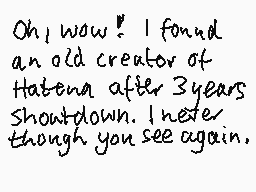 Oh, wow! I found
an old creator of
Hatena after 3 years
shoutdown. I never
though you see again.